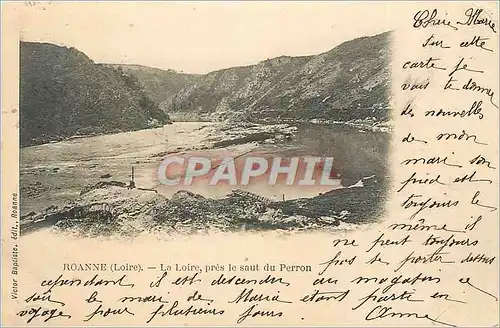 Chère Marie
Sur cette
carte je
vais te donner
des nouvelles
de mon
mari son
pied est
toujours le
même il
ne peut toujours
pas se porter dessus
cependant il est descendu au magasin ce
soir le mari de Maria étant partie en
voyage pour plusieurs jours. Anna
CPAPHIL
ROANNE (Loire). — La Loire, près le saut du Perron
Victor Baptiste, édit., Roanne